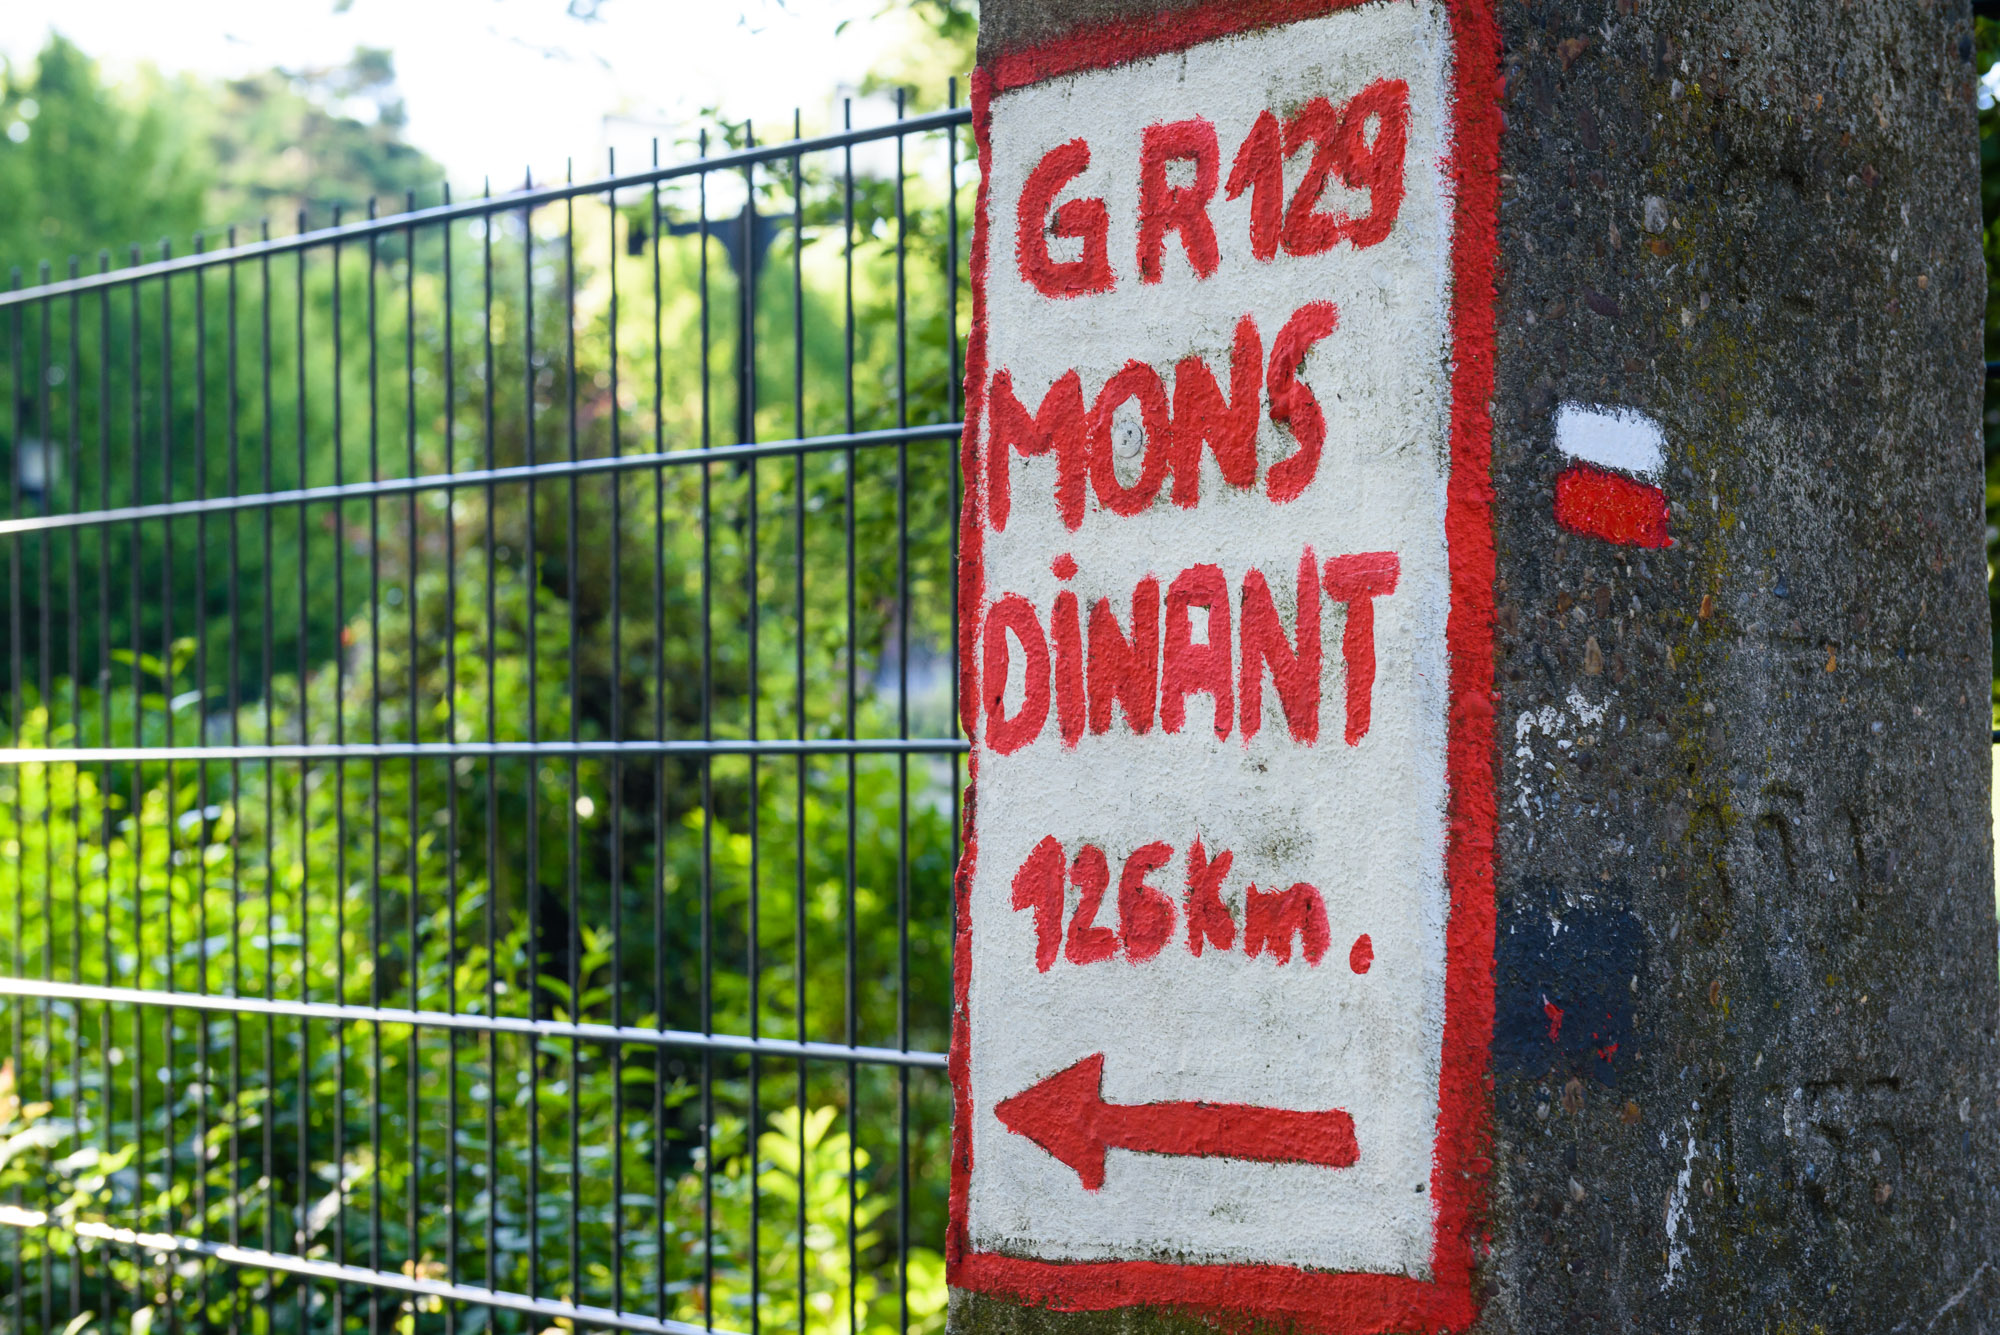 GR129
MONS
DiNANT
126Km.